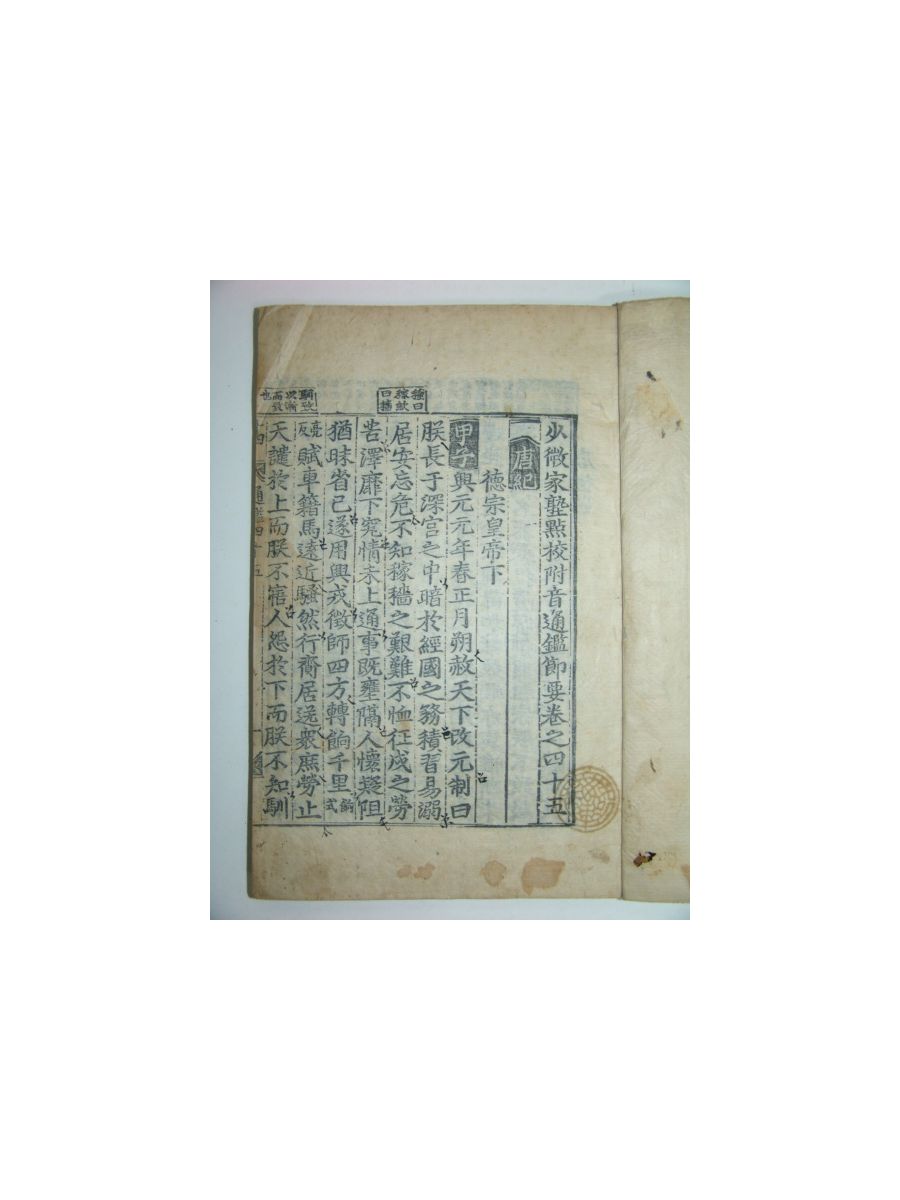 少微家塾點校附音通鑑節要卷之四十五
唐紀
德宗皇帝下
甲子興元元年春正月朔赦天下改元制曰
朕長于深宮之中暗於經國之務積習易溺
居安忘危不知稼穡之艱難不恤征戍之勞
苦澤靡下究情未上通事旣壅隔人懷疑阻
猶昧省己遂用興戎徵師四方轉餉千里餉式
亮反賦車籍馬遠近騷然行齎居送衆庶勞止
天譴於上而朕不寤人怨於下而朕不知馴
通鑑四十五
種曰
稼斂
曰穡
馴致
以漸
而致
也